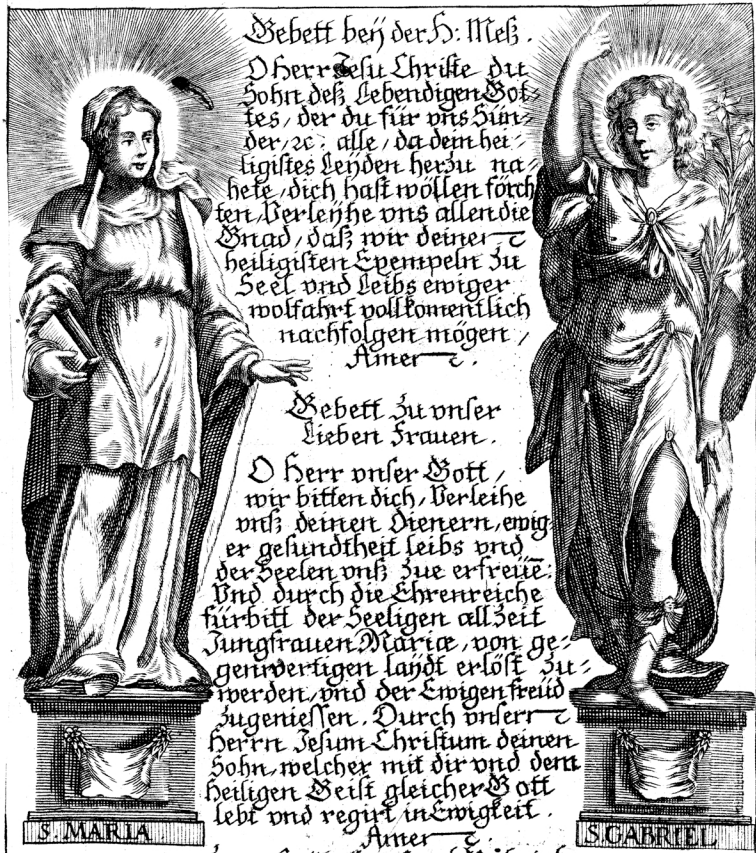 Gebett bey der H: Meß.
O Herr Jesu Christe du
Sohn deß Lebendigen Got=
tes, der du für vns Sün=
der, ꝛc. alle, da dein hei=
ligistes Leyden herzu na=
hete, dich hast wöllen förch
ten, Verleyhe vns allen die
Gnad, daß wir deinen
heiligisten Exempeln zu
Seel vnd Leibs ewiger
wolfahrt vollkomentlich
nachfolgen mögen,
Amen.
Gebett zu vnser
Lieben Frauen.
O Herr vnser Gott,
wir bitten dich, Verleihe
vnß deinen Dienern, ewig
er gesundtheit leibs vnd
der Seelen vnß zue erfreüē:
Vnd durch die Ehrenreiche
fürbitt der Seeligen allzeit
Jungfrauen Mariæ, von ge=
genwertigen laydt erlöst zu=
werden, vnd der Ewigen freüd
zugeniessen. Durch vnsern
Herrn Jesum Christum deinen
Sohn, welcher mit dir vnd dem
Heiligen Geist gleicher Gott
lebt vnd regirt in Ewigkeit.
Amen.
S. MARIA.
S. GABRIEL